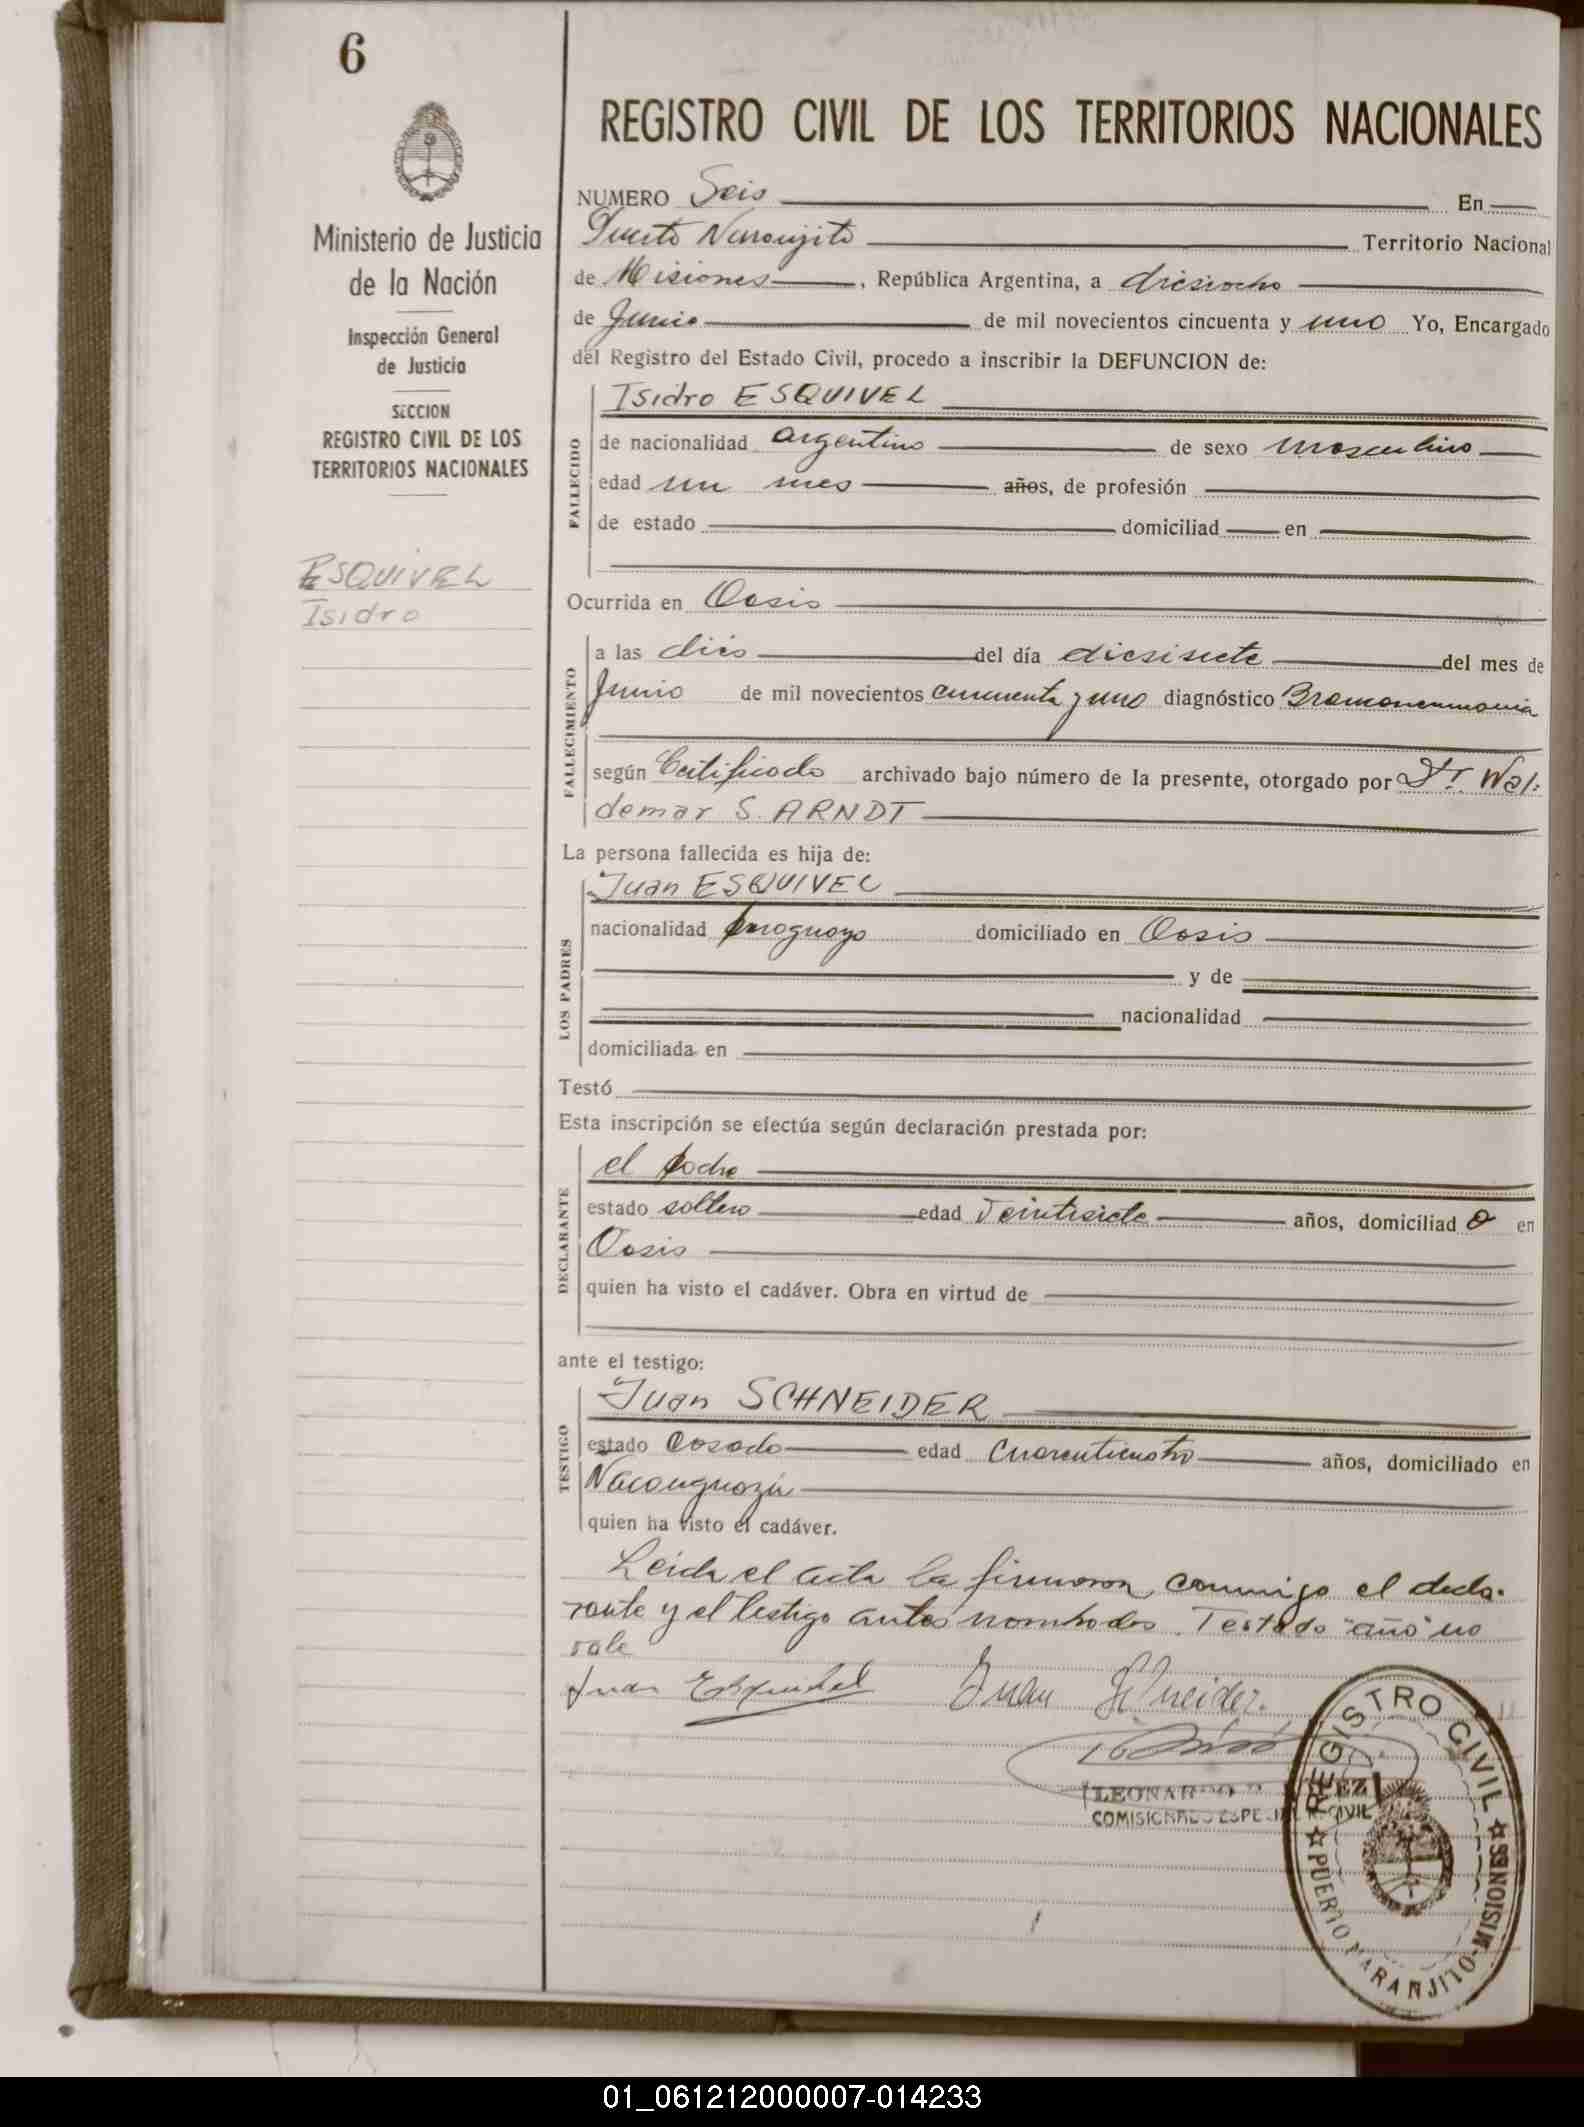 6
Ministerio de Justicia
de la Nación
Inspección General
de Justicia
SECCION
REGISTRO CIVIL DE LOS
TERRITORIOS NACIONALES
ESQUIVEL
Isidro
REGISTRO CIVIL DE LOS TERRITORIOS NACIONALES
NUMERO Seis En
Puerto Naranjito Territorio Nacional
de Misiones, República Argentina, a diesiocho
de Junio de mil novecientos cincuenta y uno Yo, Encargado
del Registro del Estado Civil, procedo a inscribir la DEFUNCION de:
FALLECIDO
Isidro ESQUIVEL
de nacionalidad argentino de sexo masculino
edad un mes años, de profesión
de estado domiciliad en
Ocurrida en Oasis
FALLECIMIENTO
a las diés del día diesisiete del mes de
Junio de mil novecientos cincuenta y uno diagnóstico Bronconeumonia
según Certificado archivado bajo número de la presente, otorgado por Dr. Wal-
demar S. ARNDT
La persona fallecida es hija de:
LOS PADRES
Juan ESQUIVEL
nacionalidad paraguayo domiciliado en Oasis
y de
nacionalidad
domiciliada en
Testó
Esta inscripción se efectúa según declaración prestada por:
DECLARANTE
el padre
estado soltero edad veintisiete años, domiciliad o en
Oasis
quien ha visto el cadáver. Obra en virtud de
ante el testigo:
TESTIGO
Juan SCHNEIDER
estado casado edad cuarenticuatro años, domiciliado en
Ñacanguazú
quien ha visto el cadáver.
Leida el acta la firmaron conmigo el decla-
rante y el testigo antes nombrados. Testado "año" no
vale
Juan Esquivel Juan Schneider.
LEONARDO EZ
COMISIONADO ESPECIAL R. CIVIL
REGISTRO CIVIL
PUERTO NARANJITO-MISIONES
01_061212000007-014233